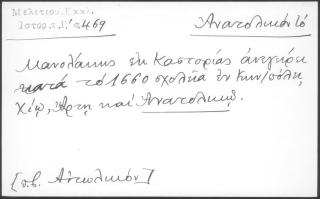 Μελετίου. Εκκλ.
Ιστορ. τ. Γ' σ 469
Ἀνατολικόν τό
Μανολάκης ἐκ Καστορίας ἀνήγειρε
κατά τό 1660 σχολεῖα ἐν Κων/πόλει,
Χίῳ, Ἄρτῃ καί Ἀνατολικῷ.
[π.β. Αἰτωλικόν]